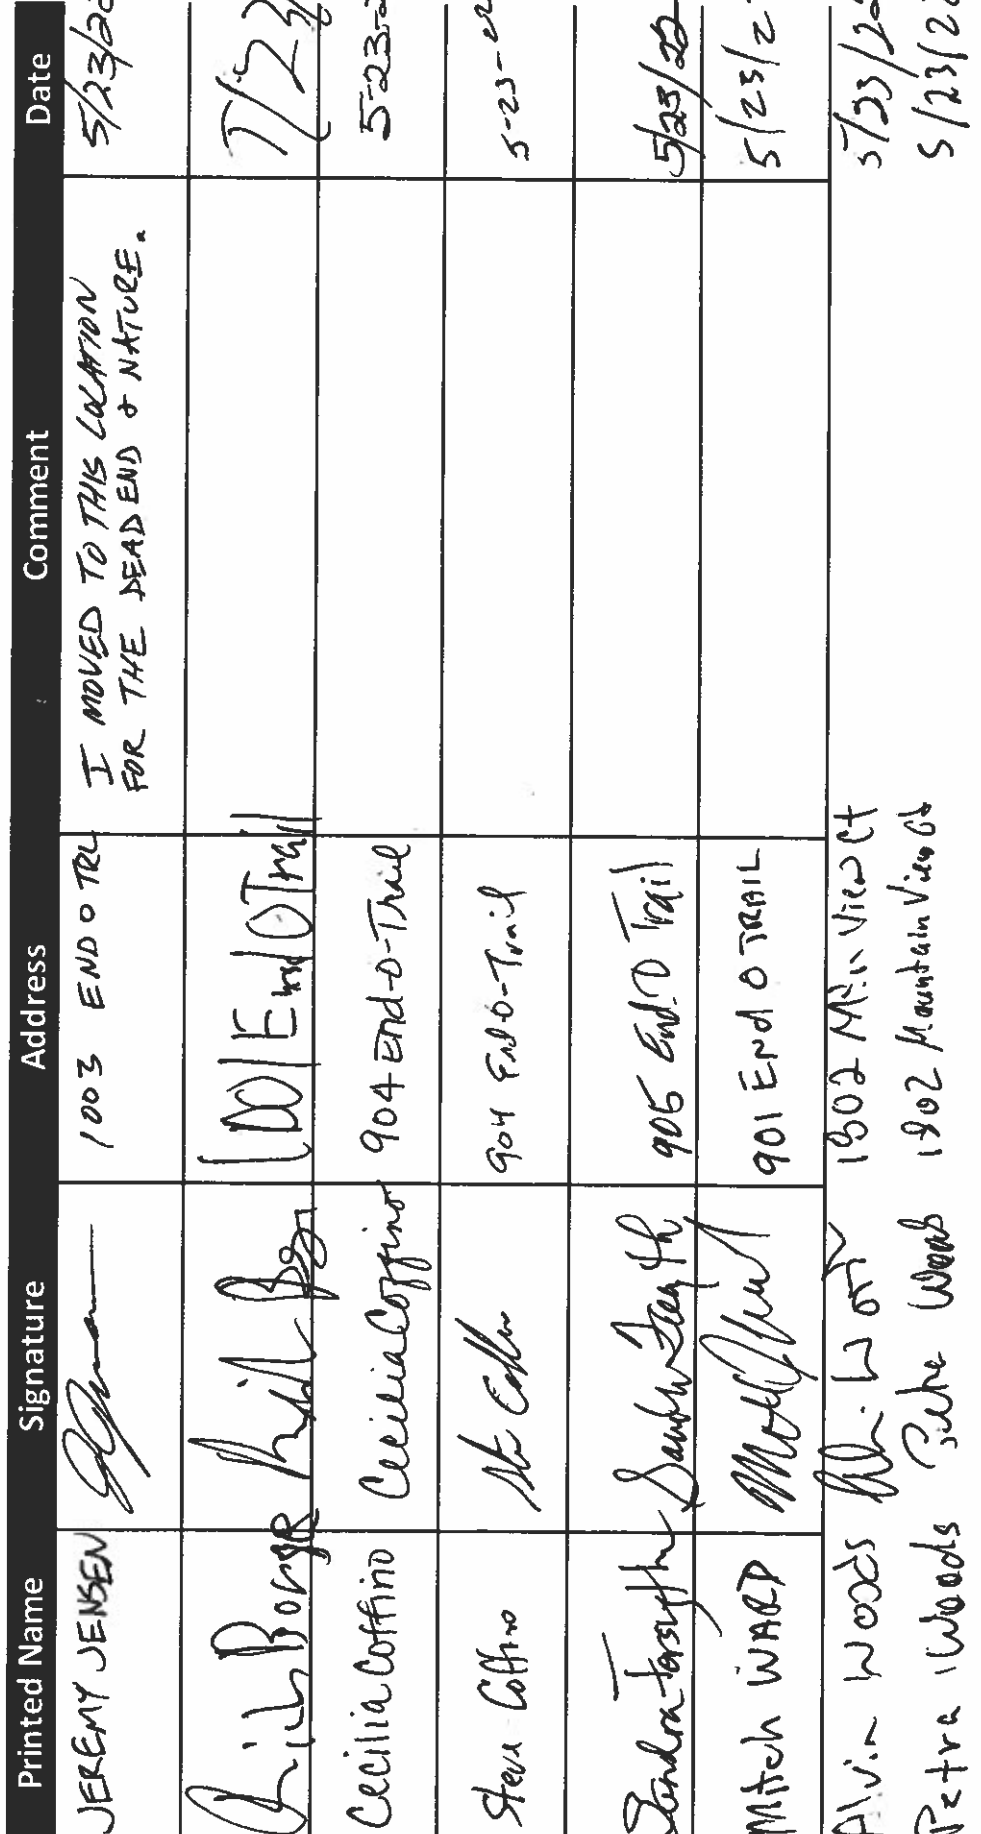 Printed Name Signature Address Comment Date
JEREMY JENSEN 1003 END O TRL I MOVED TO THIS LOCATION 5/23/2
FOR THE DEAD END & NATURE.
1001 End O Trail /23/
Cecilia Coffino Cecilia Coffino 904 End-O-Trail 5-23-2
Steve Coffino 904 End-O-Trail 5-23-22
Sandra Forsythe 905 End O Trail 5/23/22
Mitch WARD 901 END O TRAIL 5/23/2
Alvin Woods 1802 Mtn View Ct 5/23/22
Petra Woods Petra Woods 1802 Mountain View Ct 5/23/22